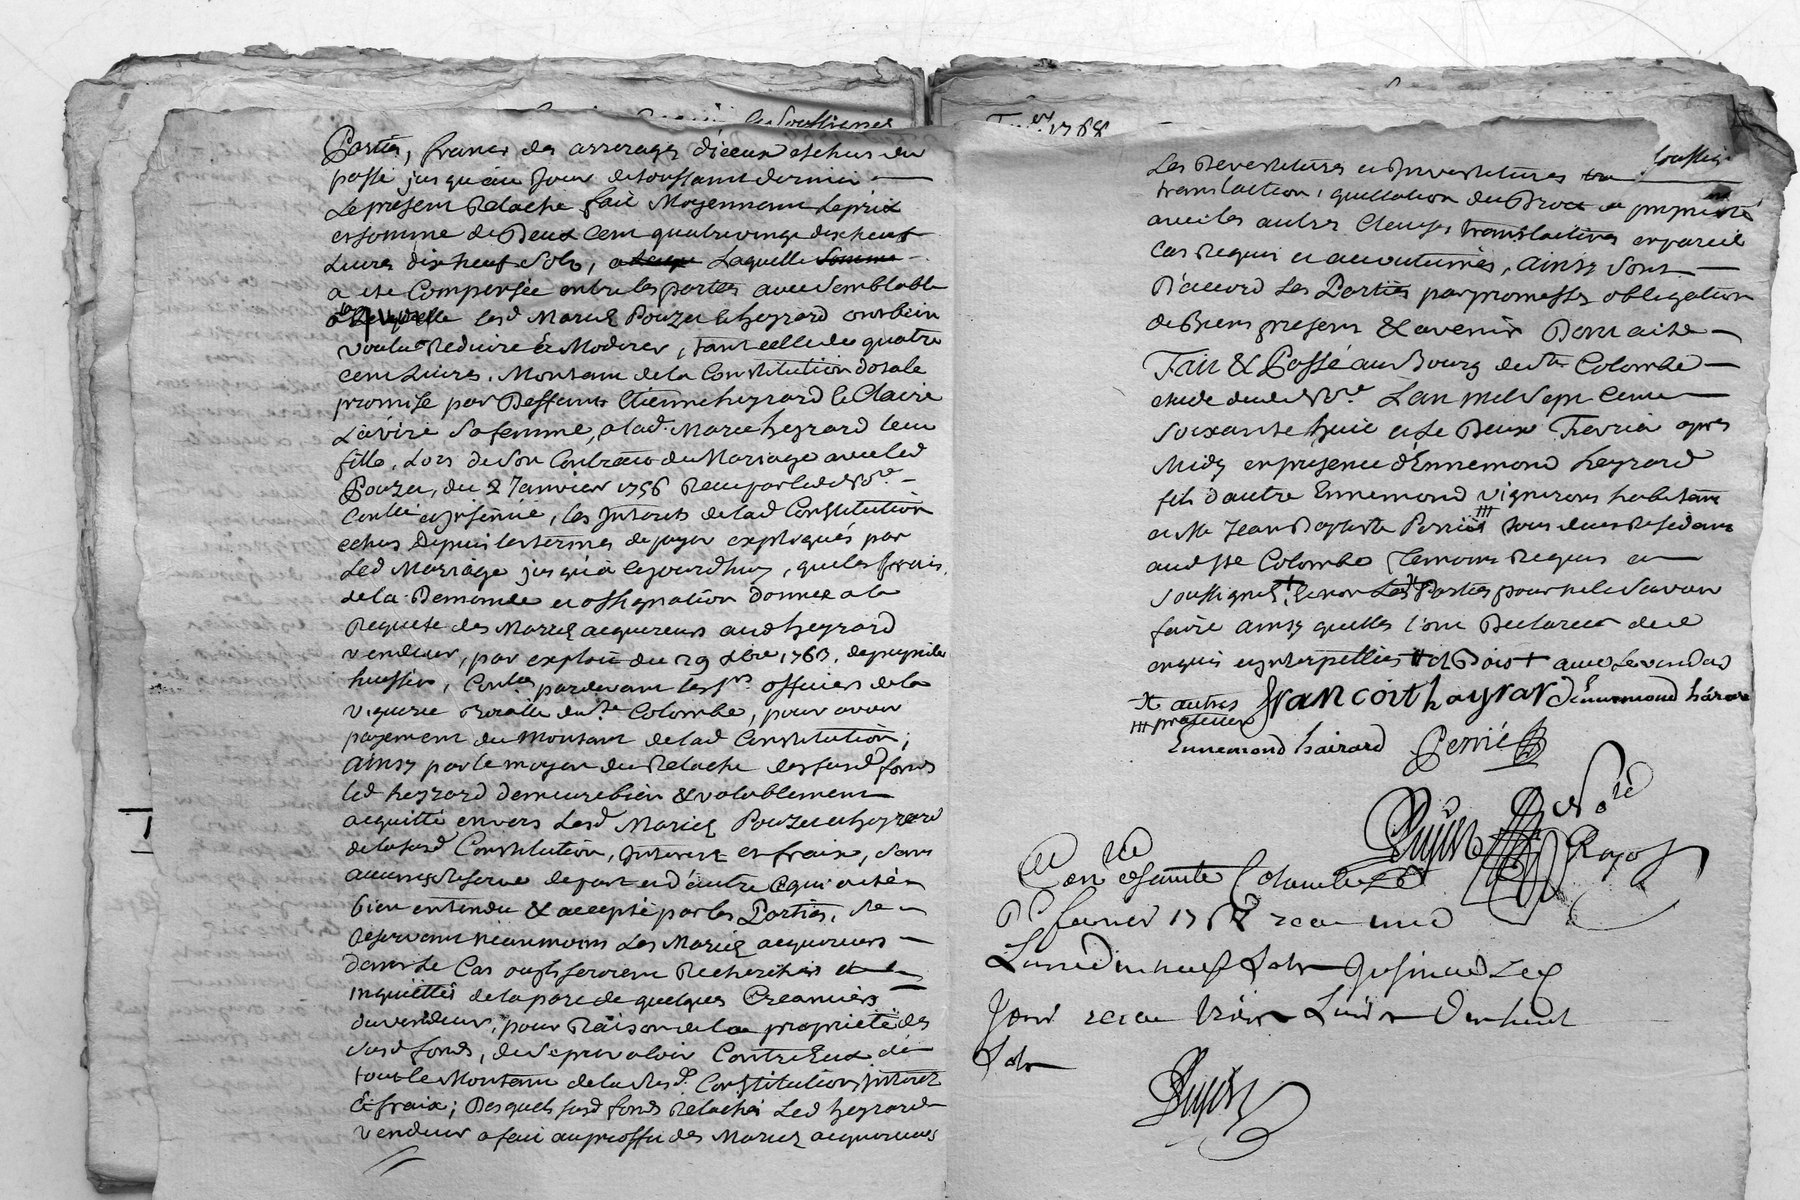 Parties, francs des arrerages d'iceux echus du
passé jusqu'au Jour de toussaint dernier
Le present Relache fait Moyennant Le prix
et somme de Deux Cent quatrevingt dix neuf
Livres dix neuf Sols, Laquelle somme
a eté Compensée entre les parties avec Semblable
lesd Mariés Pouzet & heyrard ont bien
voulu Reduire & Moderer, tant celle de quatre
cent Livres, Montant de la Constitution dotale
promise par Deffunts Etienne heyrard & Claire
Laviré Sa femme, a lad. Marie heyrard leur
fille, Lors de Son Contract de Mariage avec led
Pouzet, du 2 Janvier 1756 Reçu par led No.re
Contlé et Insinué, les Interets de lad Constitution
echus Depuis les termes de payer expliqués par
Led Mariage jusqu'à cejourdhuy, que les frais
de la Demande et assignation donnée a la
Requete des Mariés acquereurs aud heyrard
vendeur, par exploit du 29 1763,
huissier, Contlé pardevant les Srs officiers de la
viguerie Royalle de Ste Colombe, pour avoir
payement du Montant de lad Constitution;
Ainsy par le moyen du Relache desd fonds
led heyrard demeure bien & valablement
acquitté envers Lesd Mariés Pouzet & heyrard
de la susd Constitution, Interets et fraix, sans
aucune Reserve de part et d'autre Ce qui a eté
bien entendu & accepté par les Parties, se
Reservant neanmoins Les Mariés acquereurs
dans le Cas ou ils seroient Recherchés et
inquiettés de la part de quelques Creanciers
du vendeur, pour Raison de la propriété des
susd fonds, de se prevaloir Contre Eux de
tout le Montant de la susd. Constitution, Interet
& fraix; Desquels susd fonds Relachés Led heyrard
vendeur a fait au proffit des Mariés acquereurs
1768
Les Devestitures et Investitures
translaction, quittation de Droit et propriété
avec les autres Clauses translatives en pareil
Cas Requis et accoutumés, Ainsy Sont
D'accord Les Parties par promesses obligation
de Biens present & avenir Dont acte
Fait & Passé au Bourg de Ste Colombe
etude dud No.re L'an mil Sept Cent
Soixante huit et Le Deux Fevrier apres
Midy en presence d'Ennemond heyrard
fils d'autre Ennemond vigneron habitant
et Me Jean Baptiste Perrier tous deux Residant
aud Ste Colombe Temoins Requis et
Soussignés + & non Les Parties pour ne le Savoir
faire ainsy quelles l'ont Declaré de ce
enquis et Interpellés + avec Le vendeur
autres francoit hayrar d'ennemond hárar
Ennemond hairard Perrié
Dujin Nore Royal
Con.lé a Sainte Colombe Le
Dx fevrier 1768 recu
Livre dix neuf Sols Insinué Led
Jour recu trois Livres Dix huit
Sols
Dujin